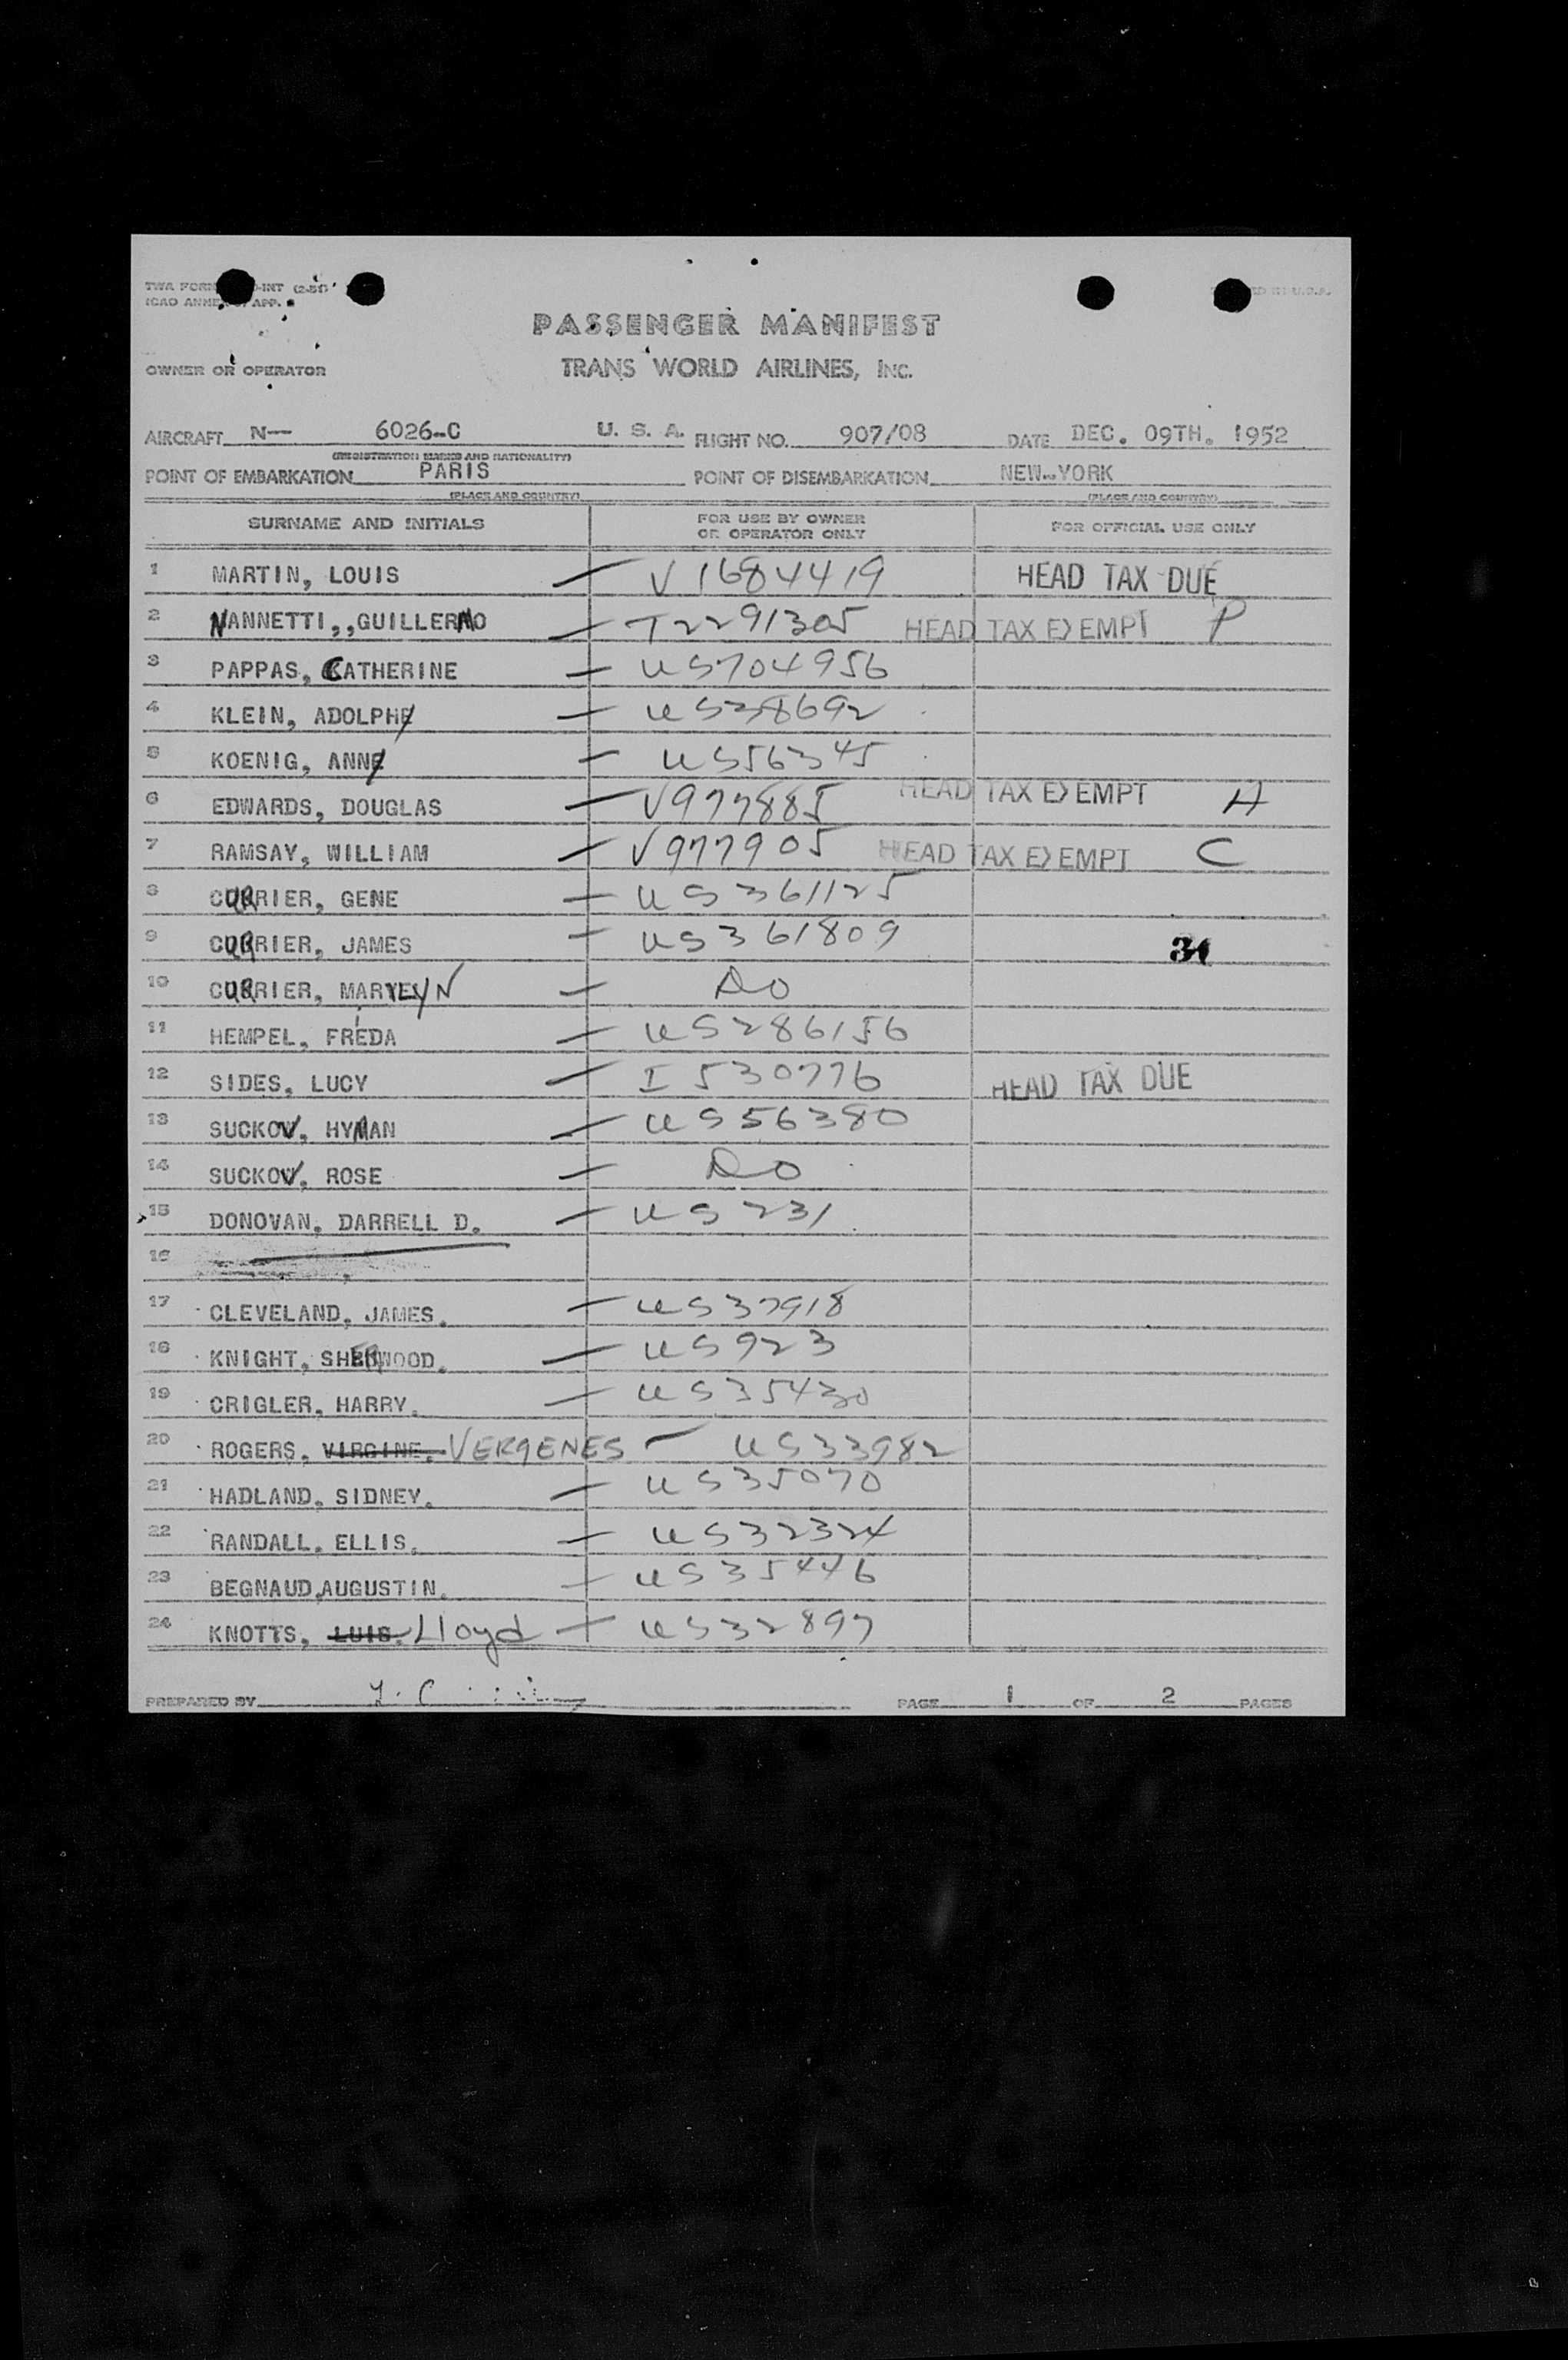 TWA FORM -INT (2-51)
ICAO ANNEX 9, APP.
PASSENGER MANIFEST
OWNER OR OPERATOR TRANS WORLD AIRLINES, INC.
AIRCRAFT N— 6026-C U. S. A. FLIGHT NO. 907/08 DATE DEC. 09TH. 1952
(REGISTRATION MARKS AND NATIONALITY)
POINT OF EMBARKATION PARIS POINT OF DISEMBARKATION NEW-YORK
(PLACE AND COUNTRY) (PLACE AND COUNTRY)
SURNAME AND INITIALS FOR USE BY OWNER OR OPERATOR ONLY FOR OFFICIAL USE ONLY
1 MARTIN, LOUIS — V1684419 HEAD TAX DUE
2 NANNETTI,,GUILLERMO — T2291305 HEAD TAX EXEMPT P
3 PAPPAS, CATHERINE — US704956
4 KLEIN, ADOLPH — US38692
5 KOENIG, ANN — US56345
6 EDWARDS, DOUGLAS — V977885 HEAD TAX EXEMPT A
7 RAMSAY, WILLIAM — V977905 HEAD TAX EXEMPT C
8 CURRIER, GENE — US361125
9 CURRIER, JAMES — US361809 31
10 CURRIER, MARYLYN — DO
11 HEMPEL, FRIEDA — US286156
12 SIDES, LUCY — I530776 HEAD TAX DUE
13 SUCKOV, HYMAN — US56380
14 SUCKOV, ROSE — DO
15 DONOVAN, DARRELL D. — US231
16
17 CLEVELAND, JAMES. — US37918
18 KNIGHT, SHERWOOD. — US923
19 CRIGLER, HARRY. — US35430
20 ROGERS, VIRGINE. VERGENES — US33982
21 HADLAND, SIDNEY. — US35070
22 RANDALL, ELLIS. — US32324
23 BEGNAUD,AUGUSTIN. — US35446
24 KNOTTS, LUIS. Lloyd — US32897
PREPARED BY PAGE 1 OF 2 PAGES